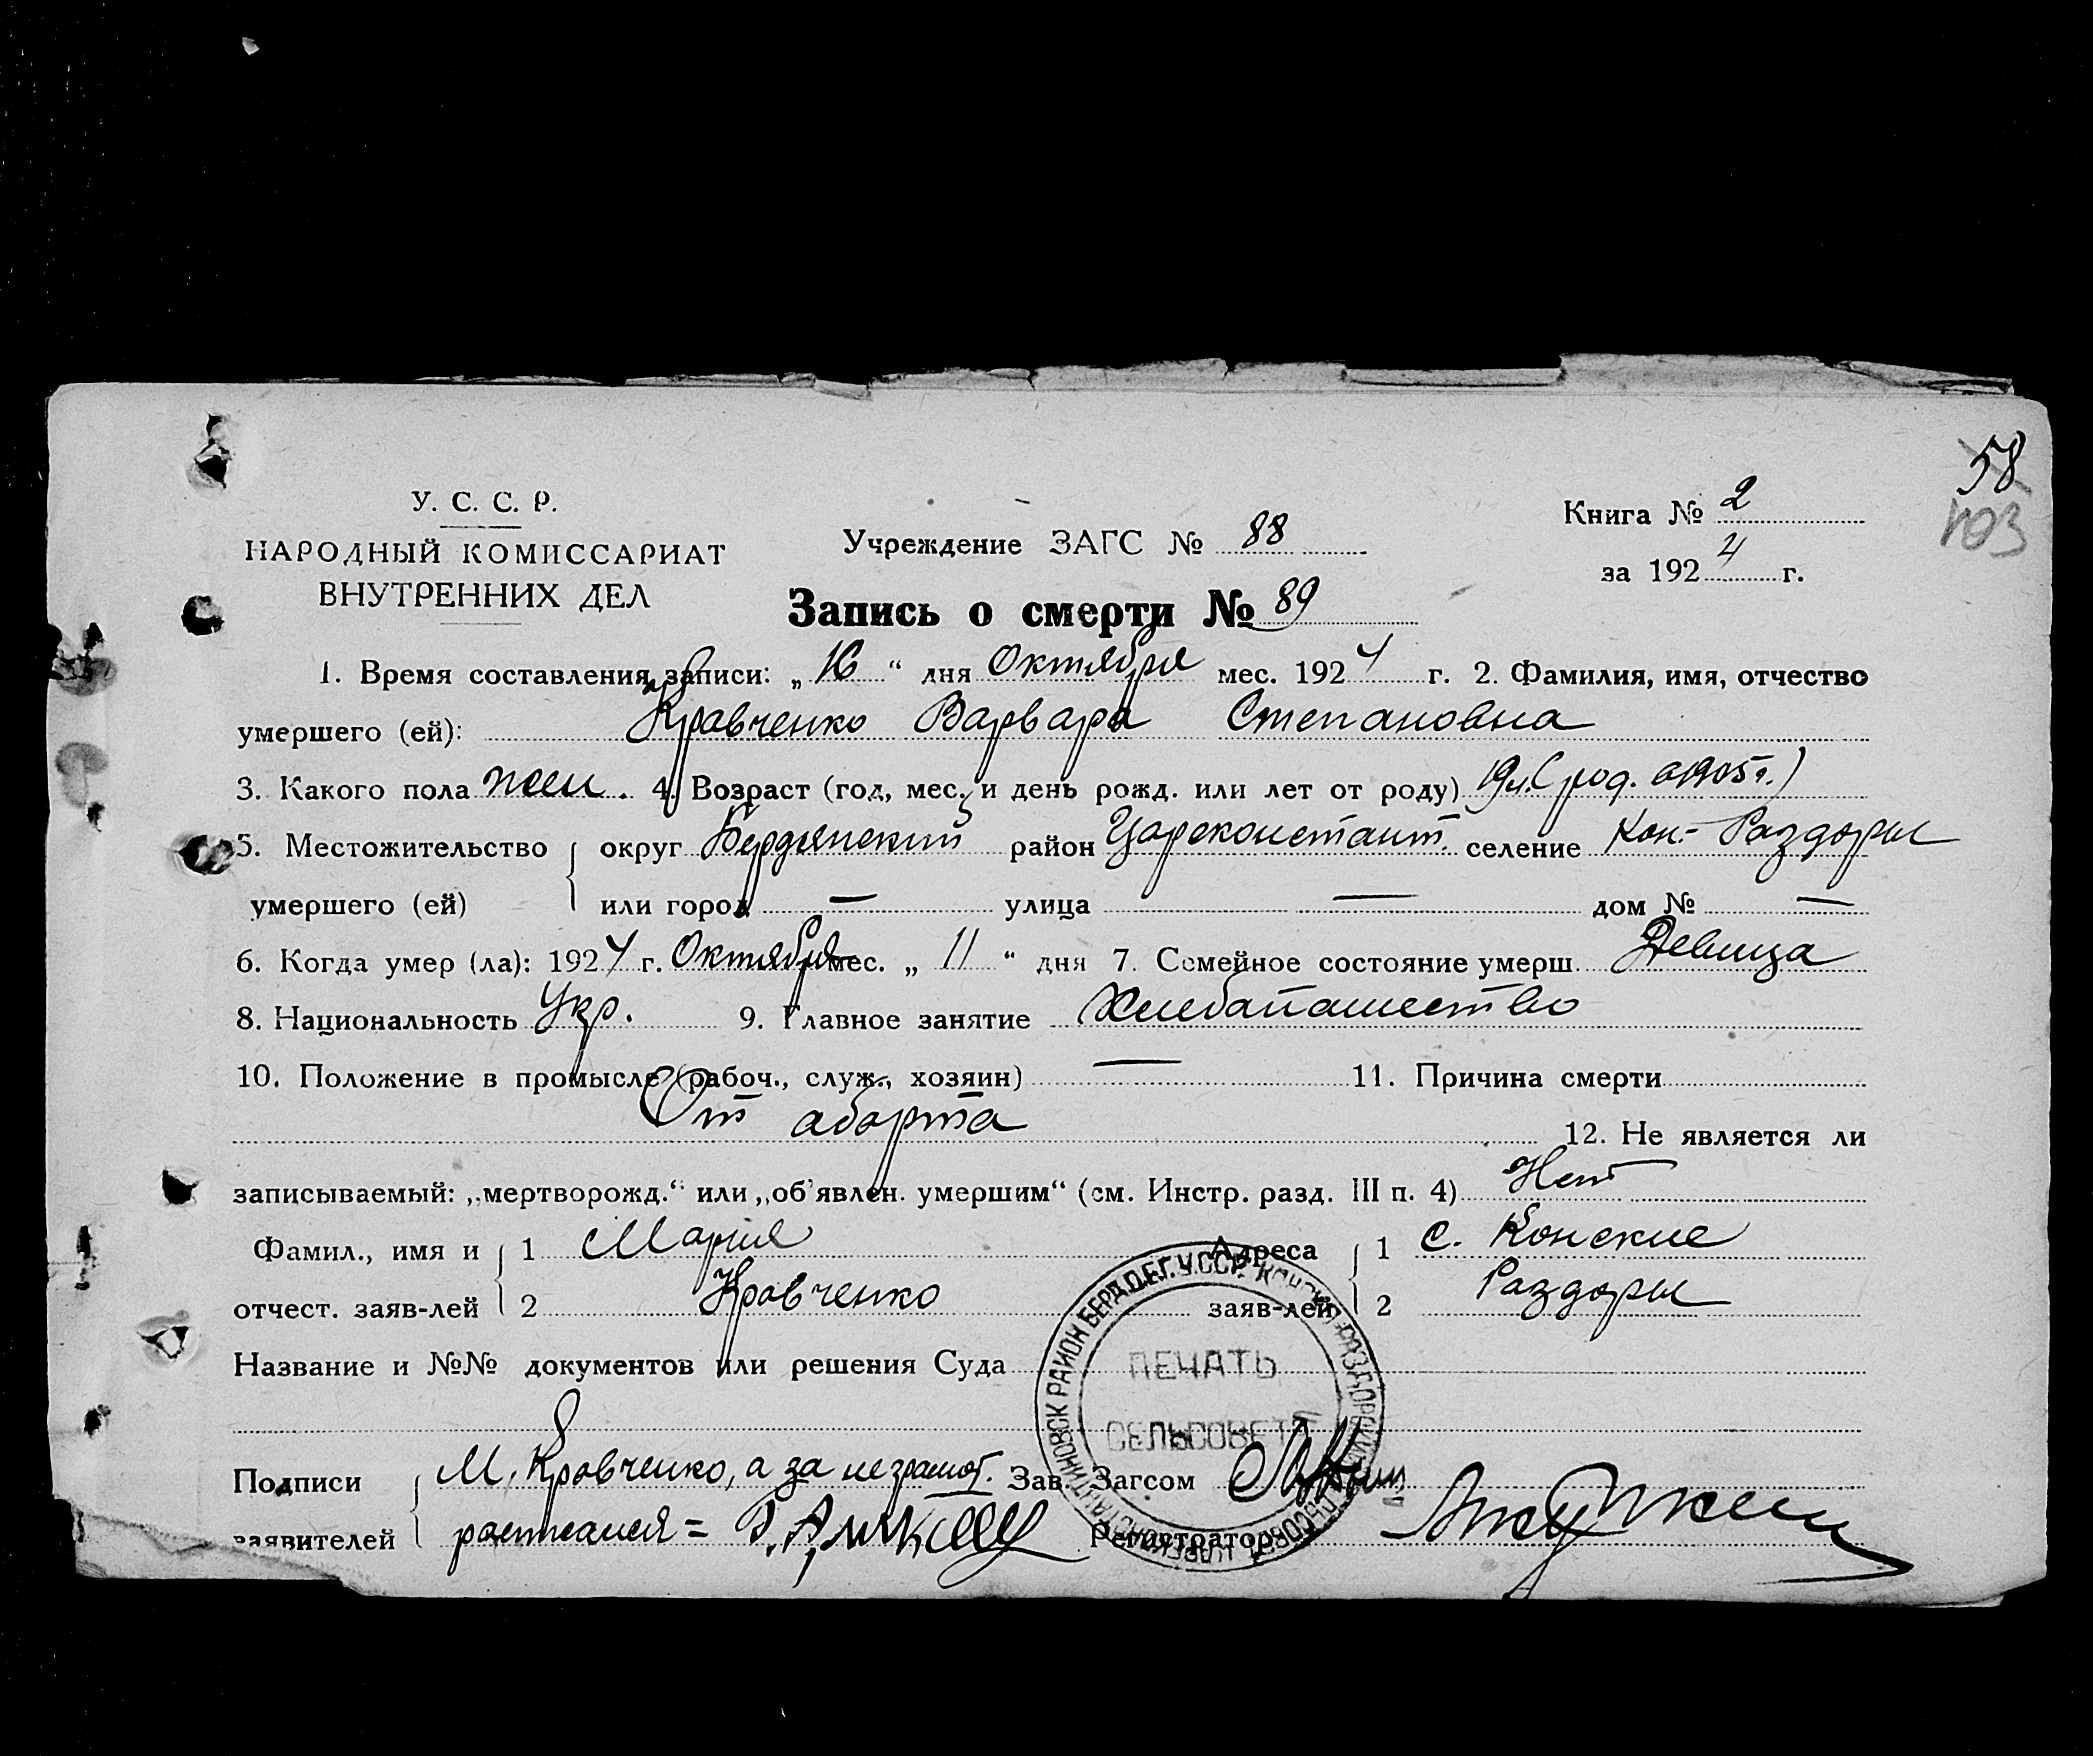 58
103
У. С. С. Р.
НАРОДНЫЙ КОМИССАРИАТ
ВНУТРЕННИХ ДЕЛ
Учреждение ЗАГС № 88
Книга № 2
за 1924 г.
Запись о смерти № 89
1. Время составления записи: „ 16 “ дня Октября мес. 1924 г. 2. Фамилия, имя, отчество
умершего (ей): Кравченко Варвара Степановна
3. Какого пола жен. 4. Возраст (год, мес. и день рожд. или лет от роду) 19 л. (род. в 1905 г.)
5. Местожительство округ Бердянский район Цареконстант. селение Кон.- Раздоры
умершего (ей) или город — улица — дом № —
6. Когда умер (ла): 1924 г. Октября мес. „ 11 “ дня 7. Семейное состояние умерш. Девица
8. Национальность Укр. 9. Главное занятие Хлебапашество
10. Положение в промысле (рабоч., служ., хозяин) — 11. Причина смерти
От аборта 12. Не является ли
записываемый: „мертворожд.“ или „об’явлен. умершим“ (см. Инстр. разд. III п. 4) Нет
Фамил., имя и 1 Мария Адреса 1 с. Конские
отчест. заяв-лей 2 Кравченко заяв-лей 2 Раздоры
Название и №№ документов или решения Суда
ПЕЧАТЬ
СЕЛЬСОВЕТА
Подписи М. Кравченко, а за неграмот. Зав. Загсом
заявителей расписался = Регистратор